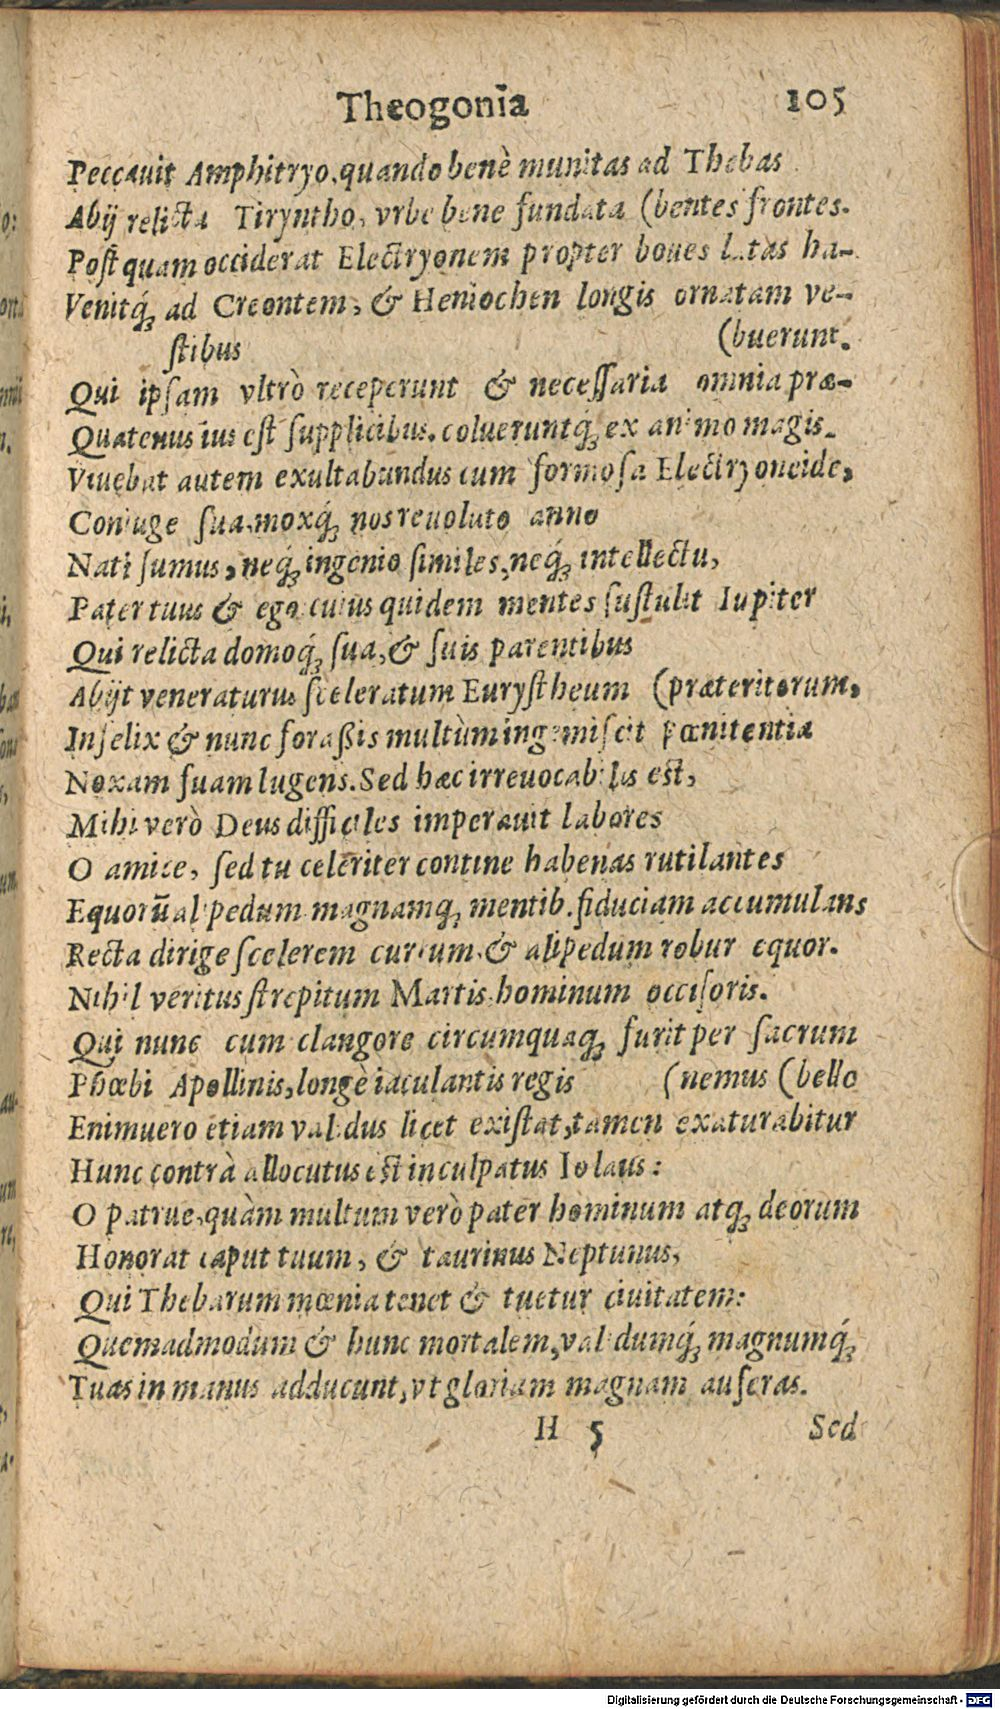 Theogonia 105
Peccauit Amphitryo, quando benè munitas ad Thebas
Abij relicta Tiryntho, vrbe bene fundata (bentes frontes.
Postquam occiderat Electryonem propter boues latas ha-
Venitq́ꝫ ad Creontem, & Heniochen longis ornatam ve-
stibus (buerunt.
Qui ipsam vltrò receperunt & necessaria omnia præ-
Quatenus ius est supplicibus, colueruntq́ꝫ ex animo magis.
Viuebat autem exultabundus cum formosa Electryoneide,
Coniuge sua, moxq́ꝫ nos reuoluto anno
Nati sumus, neq́ꝫ ingenio similes, neq́ꝫ intellectu,
Pater tuus & ego: cuius quidem mentes sustulit Iupiter
Qui relicta domoq́ꝫ sua, & suis parentibus
Abijt veneraturus sceleratum Eurystheum (præteritorum,
Infelix & nunc foraßis multùm ingemiscit pœnitentia
Noxam suam lugens. Sed hæc irreuocabilis est,
Mihi verò Deus difficiles imperauit labores
O amice, sed tu celeriter contine habenas rutilantes
Equorū alipedum magnamqꝫ mentib. fiduciam accumulans
Recta dirige scelerem currum, & alipedum robur equor.
Nihil veritus strepitum Martis hominum occisoris.
Qui nunc cum clangore circumquaqꝫ furit per sacrum
Phœbi Apollinis, longè iaculantis regis (nemus (bello
Enimuero etiam validus licet existat, tamen exaturabitur
Hunc contrà allocutus est inculpatus Iolaus:
O patrue, quàm multum verò pater hominum atqꝫ deorum
Honorat caput tuum, & taurinus Neptunus,
Qui Thebarum mœnia tenet & tuetur ciuitatem:
Quemadmodum & hunc mortalem, validumq́ꝫ magnumq́ꝫ
Tuas in manus adducunt, vt gloriam magnam auferas.
H 5 Sed
Digitalisierung gefördert durch die Deutsche Forschungsgemeinschaft - DFG